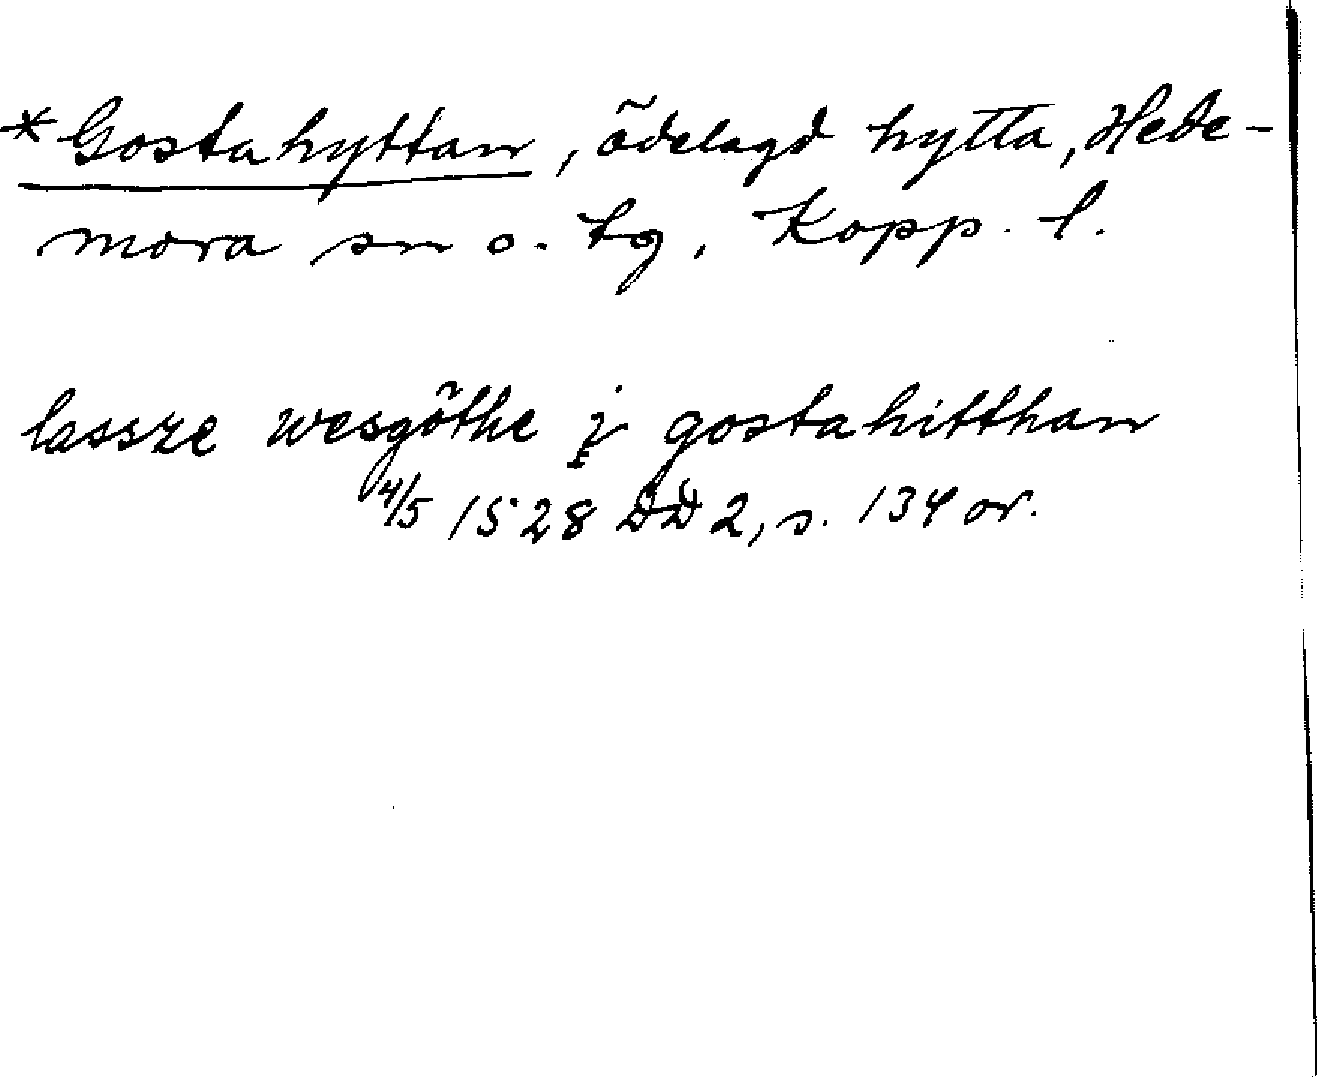 *Gostahyttan, ödelagd hytta, Hede-
mora sn o. tg, Kopp. l.
lassze wesgöthe j gostahitthan
4/5 1528 DD 2, s. 134 or.